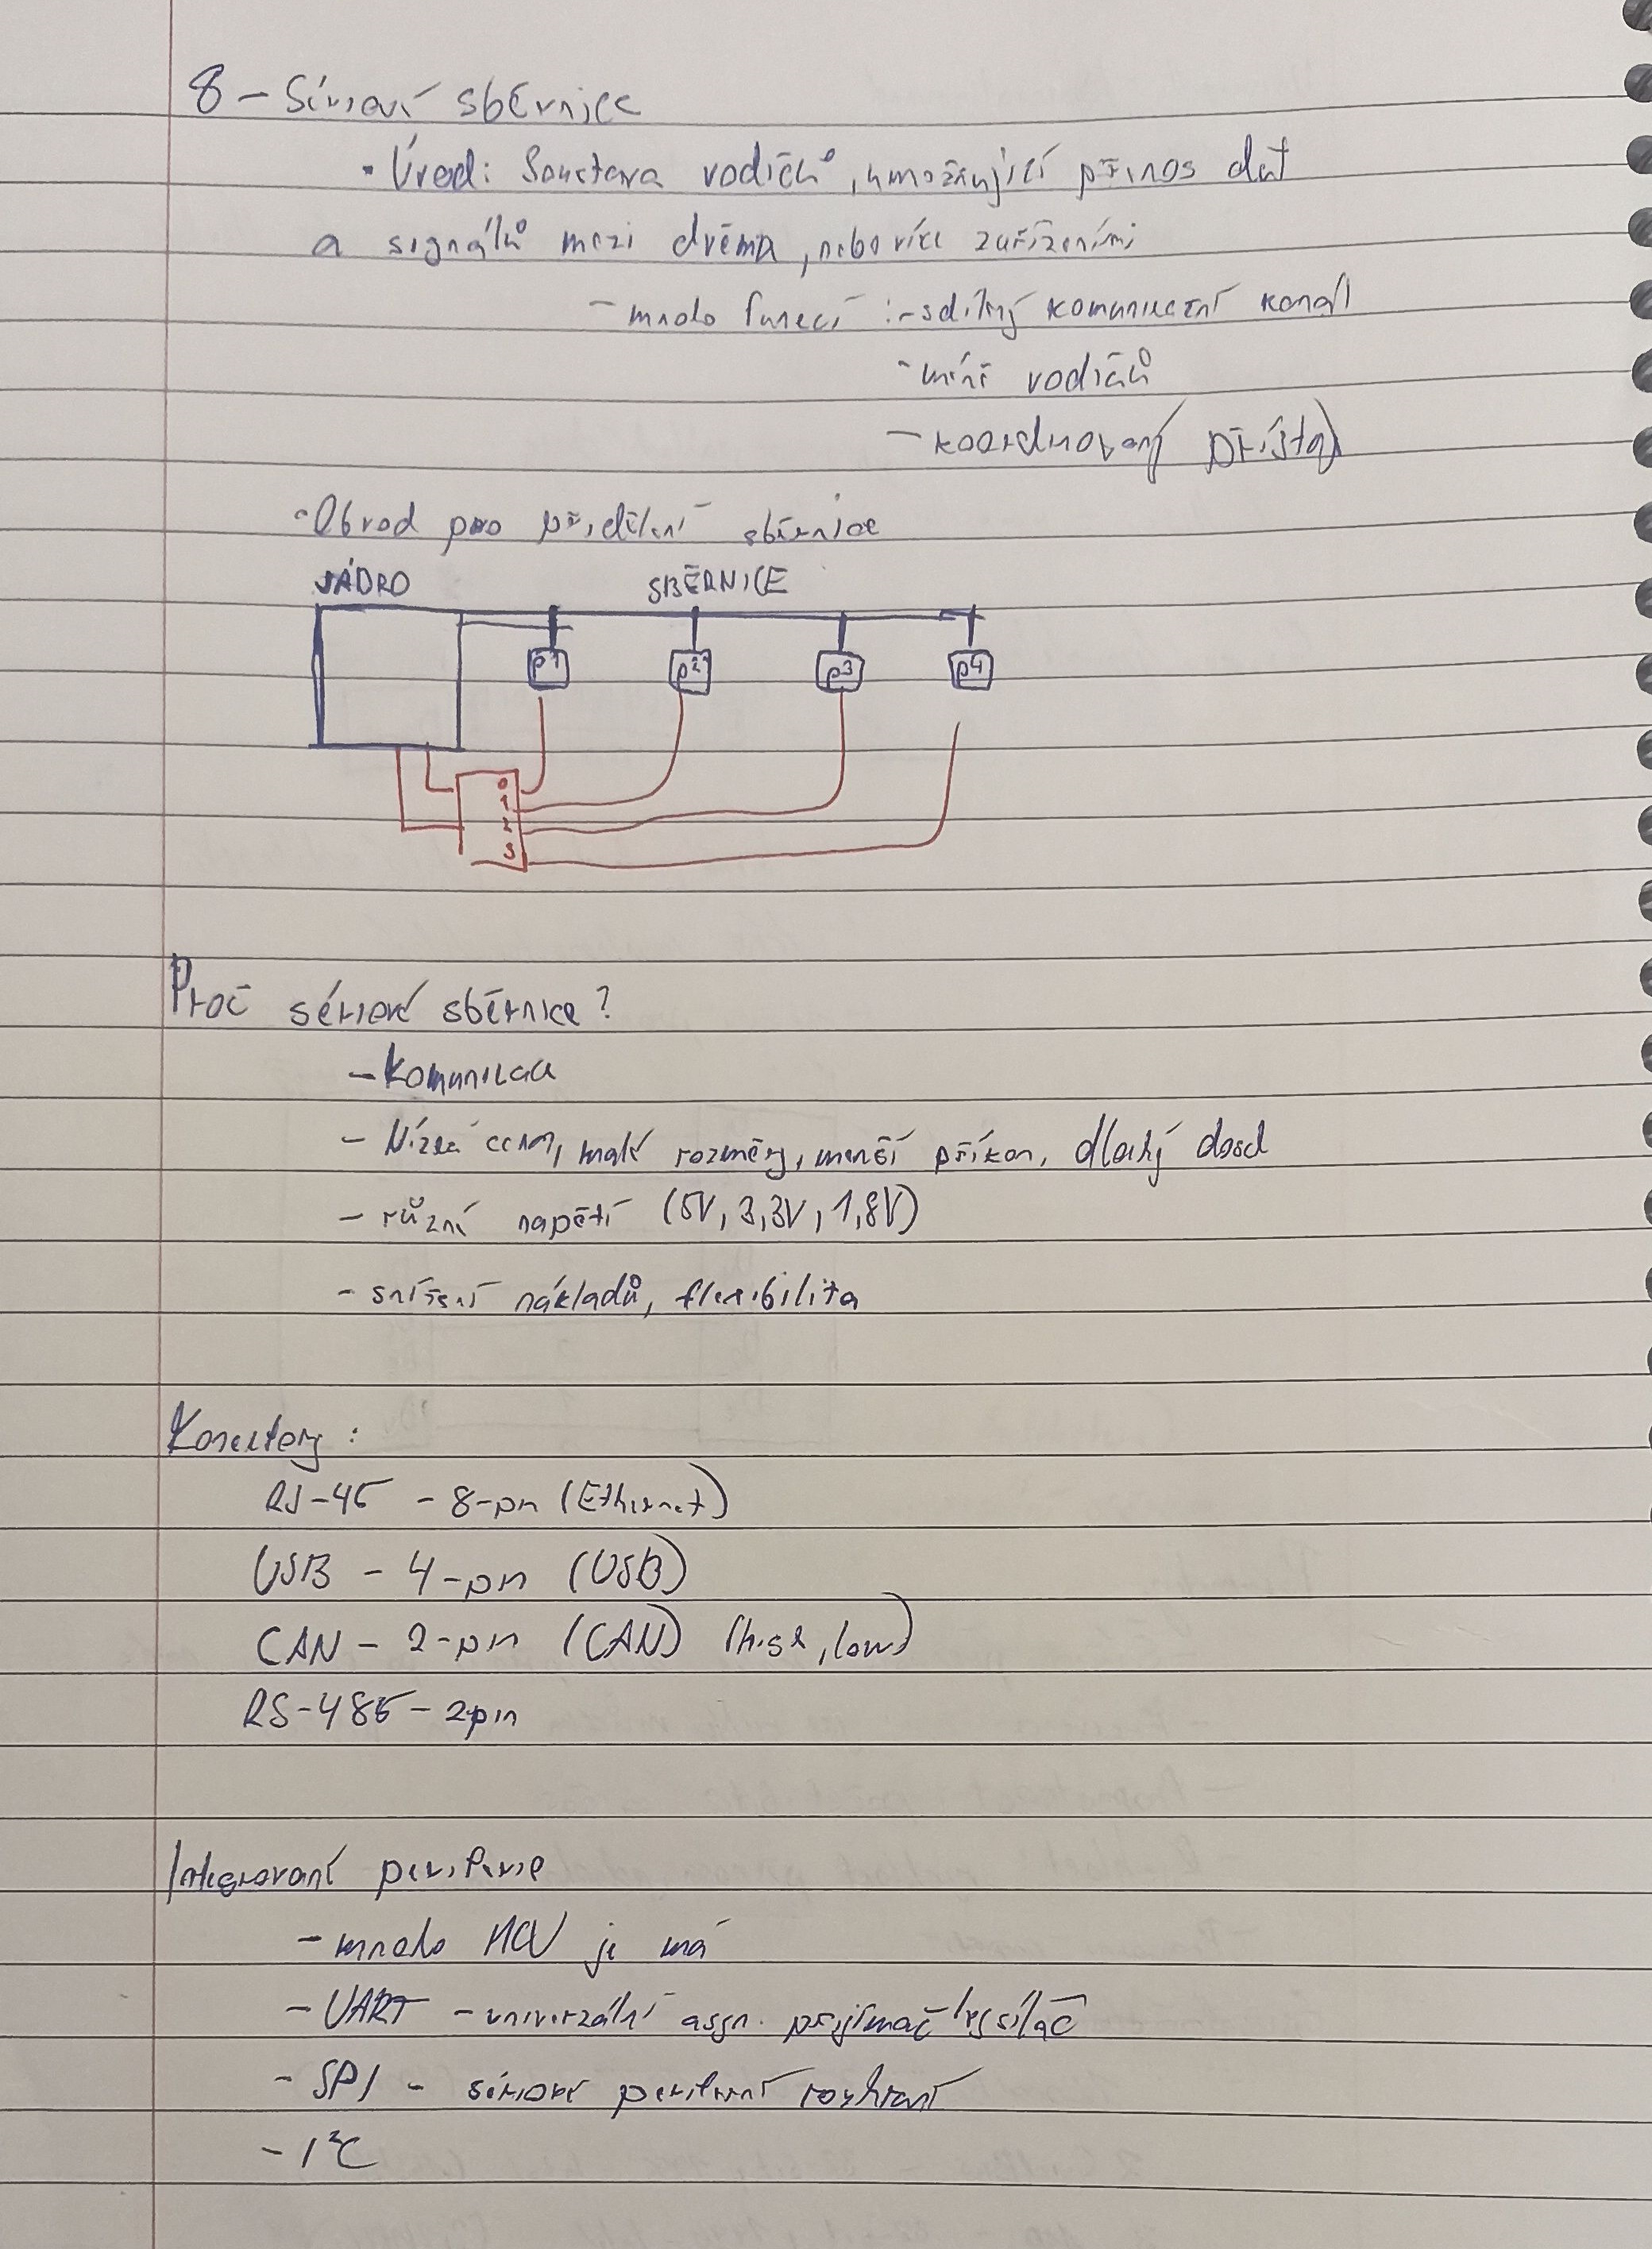 8 – Sériové sběrnice
• Úvod: Soustava vodičů, umožňující přenos dat
a signálů mezi dvěma, nebo více zařízeními
– mnoho funkcí : – sdílený komunikační kanál
– méně vodičů
– koordinovaný přístup
• Obvod pro přidělení sběrnice
JÁDRO SBĚRNICE
P1 P2 P3 P4
0
1
2
3
Proč sériové sběrnice?
– Komunikace
– Nízká cena, malé rozměry, menší příkon, dlouhý dosah
– různé napětí (5V, 3,3V, 1,8V)
– snížení nákladů, flexibilita
Konektory :
RJ-45 – 8-pin (Ethernet)
USB – 4-pin (USB)
CAN – 2-pin (CAN) (high, low)
RS-485 – 2pin
Integrované periferie
– mnoho MCU je má
– UART – univerzální asyn. přijímač/vysílač
– SPI – sériové periferní rozhraní
– I²C